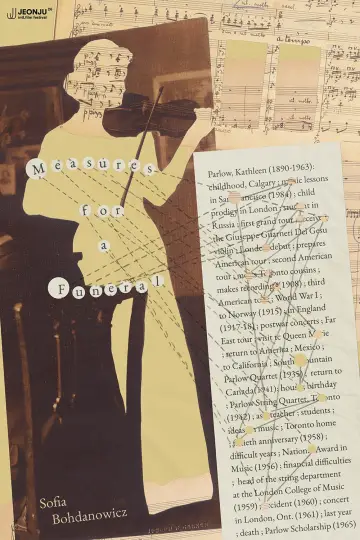 JEONJU
intl. film festival
a tempo
Measures
for
a
Funeral
Parlow, Kathleen (1890-1963):
childhood, Calgary ; music lessons
in San Francisco (1984) ; child
prodigy in London ; tour in
Russia ; first grand tour ; receives
the Giuseppe Guarneri Del Gesu
violin ; London debut ; prepares
American tour ; second American
tour ; Toronto cousins ;
makes recording (1908) ; third
American tour ; World War I ;
to Norway (1915) ; to England
(1917-18) ; postwar concerts ; Far
East tour ; visit to Queen Marie
; return to America ; Mexico ;
to California ; South Mountain
Parlow Quartet (1935) ; return to
Canada (1941) ; birthday
; Parlow String Quartet, Toronto
(1942) ; as teacher ; students ;
ideas on music ; Toronto home
; fiftieth anniversary (1958) ;
difficult years ; National Award in
Music (1956) ; financial difficulties
; head of the string department
at the London College of Music
(1959) ; accident (1960) ; concert
in London, Ont. (1961) ; last year
; death ; Parlow Scholarship (1965)
Sofia
Bohdanowicz